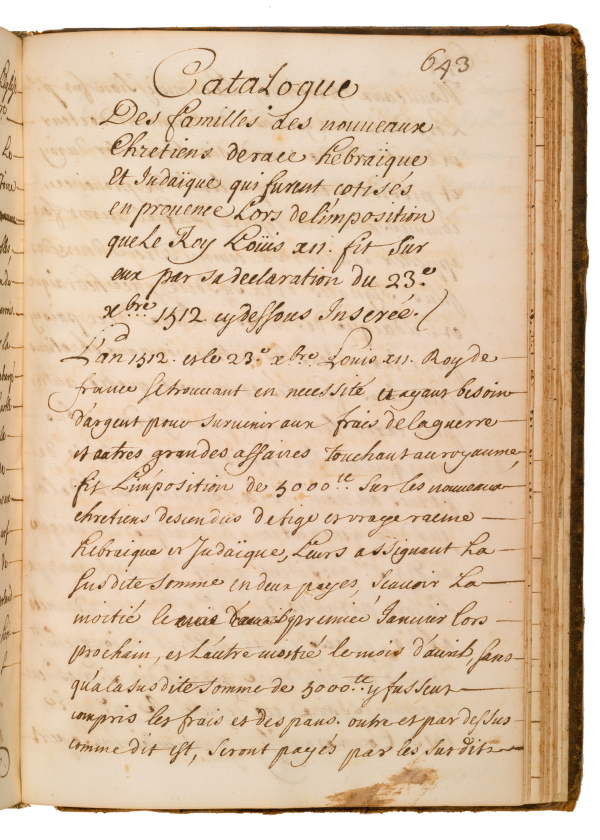 643
Catalogue
Des familles des nouveaux
Chretiens de race hebraïque
Et Judaïque qui furent cotisés
en provence Lors de l'imposition
que Le Roy Loüis XII. fit sur
eux par sa declaration du 23.e
xbre 1512 cy dessous Inserée.
L'an 1512. et le 23.e xbre Louis XII. Roy de
france se trouvant en necessité et ayant besoin
d'argent pour survenir aux frais de la guerre
et autres grandes affaires touchant au royaume,
fit L'imposition de 5000 tt sur les nouveaux
chretiens descendus de tige et vraye racine
hebraique et Judaïque, Leurs assignant La
susdite somme en deux payes, scavoir La
moitié le premier Janvier lors
prochain, et L'autre moitié le mois d'avril, sans
qu'a la susdite somme de 5000 tt y fussent
compris les frais et despans. outre et par dessus
comme dit est, seront payés par les susdits